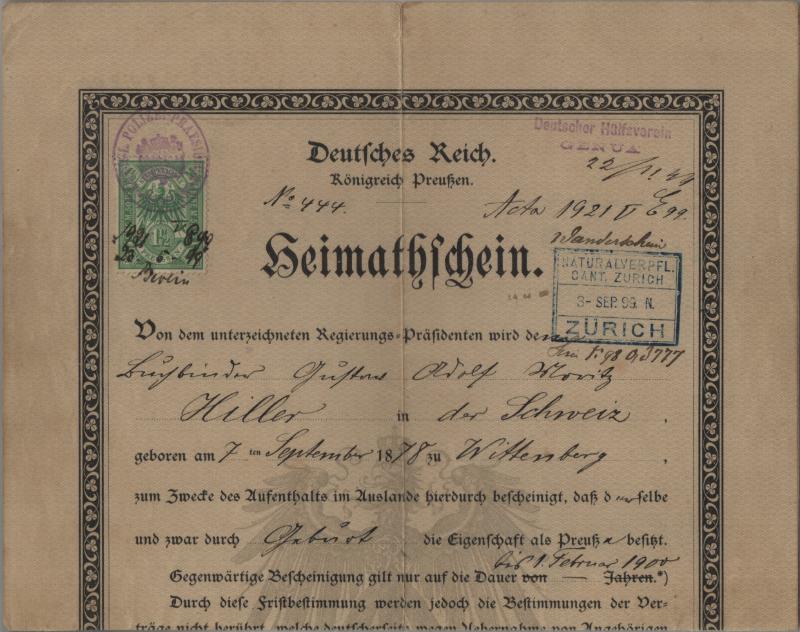 KGL. POLIZEI-PRÄSID
Deutscher Hülfsverein
GENUA
22/11 99
Deutsches Reich.
Königreich Preußen.
No 444.
Acta 1921 V E 99.
1½
Berlin
Heimathschein.
Wanderschein
NATURALVERPFL.
CANT. ZÜRICH
3- SEP. 99. N.
ZÜRICH
Von dem unterzeichneten Regierungs-Präsidenten wird dem
Buchbinder Gustav Adolf Moritz
Hiller in der Schweiz .
geboren am 7 ten September 1878 zu Wittenberg ,
zum Zwecke des Aufenthalts im Auslande hierdurch bescheinigt, daß derselbe
und zwar durch Geburt die Eigenschaft als Preuße besitzt.
bis 1. Februar 1900
Gegenwärtige Bescheinigung gilt nur auf die Dauer von — Jahren.*)
Durch diese Fristbestimmung werden jedoch die Bestimmungen der Ver-
träge nicht berührt, welche deutscherseits wegen Uebernahme von Angehörigen